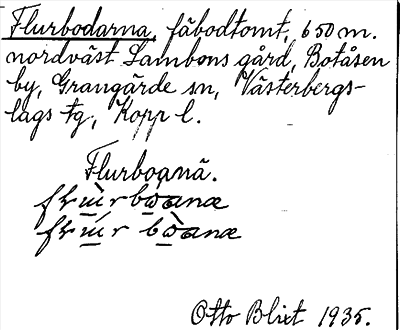 Flurbodarna, fäbodtomt, 650 m.
nordväst Lambens gård, Botåsen
by, Grangärde sn, Västerbergs-
lags tg, Kopp l.
Flurboanä.
Otto Blixt 1935.